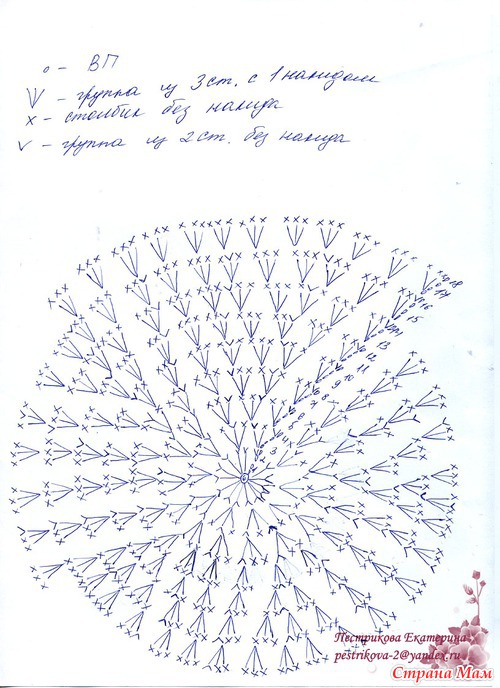 o – ВП
V – группа из 3 ст. с 1 накидом
x – столбик без накида
v – группа из 2 ст. без накида
18
17
16
15
13
12
11
10
9
8
3
Пестрикова Екатерина
pestrikova-2@yandex.ru
Страна Мам